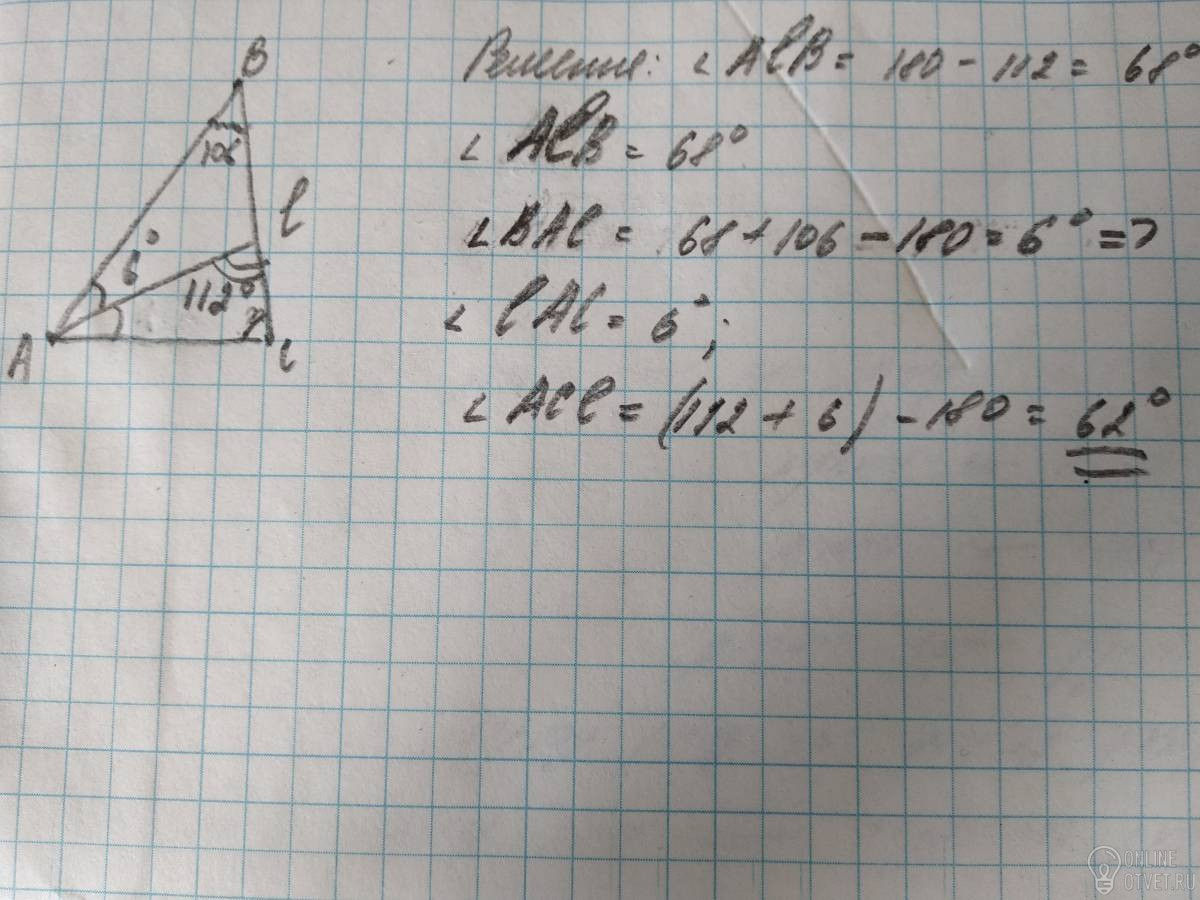 B
106
ℓ
6°
112°
x
A
C
Решение: ∠AℓB = 180 - 112 = 68°
∠AℓB = 68°
∠BAℓ = 68 + 106 - 180 = 6° =>
∠ℓAC = 6°;
∠ACℓ = (112 + 6) - 180 = 62°
ONLINE
OTVET.RU